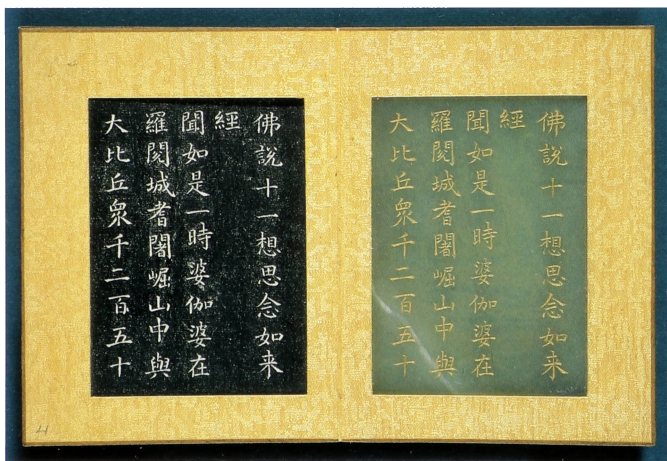 佛說十一想思念如来
經
聞如是一時婆伽婆在
羅閱城耆闍崛山中與
大比丘衆千二百五十
佛說十一想思念如来
經
聞如是一時婆伽婆在
羅閱城耆闍崛山中與
大比丘衆千二百五十
4